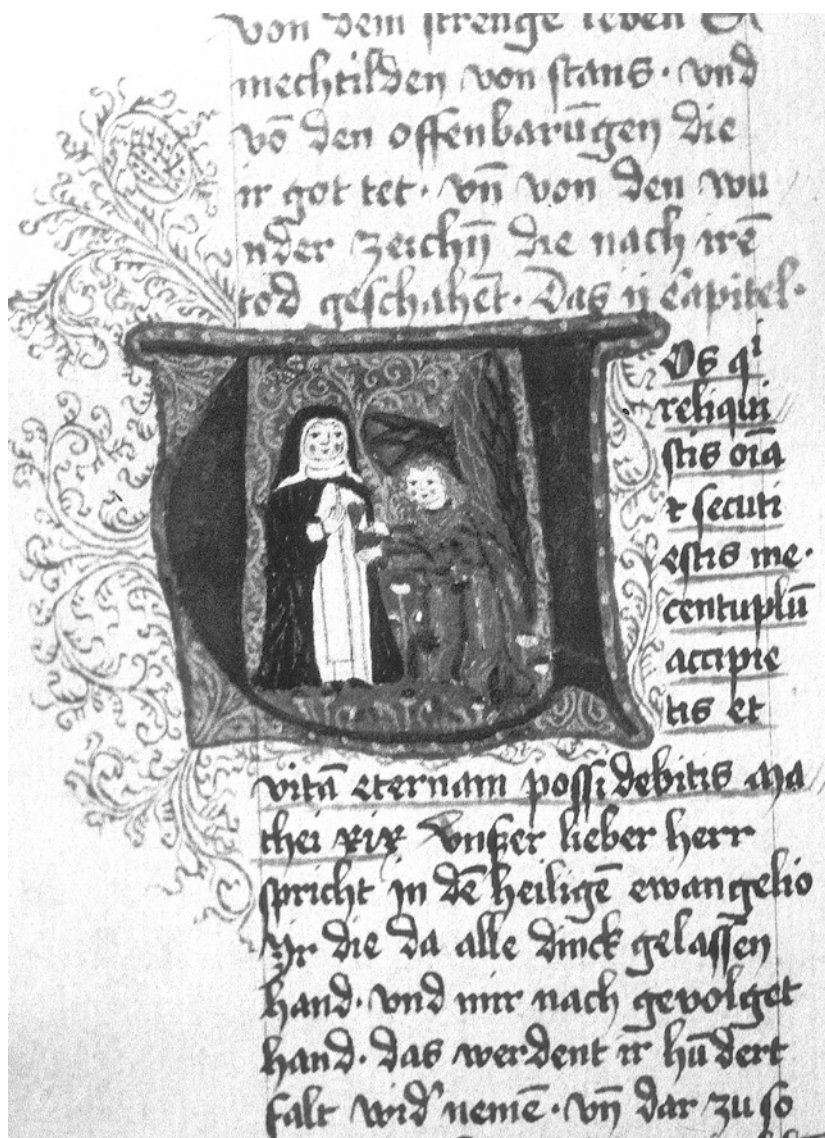 von dem strenge leben
mechtilden von stans · vnd
vō den offenbarūngen die
ir got tet · vn̄ von den wu
nder zeichn̄ die nach irē
tod geschahēt · Das ij Capitel ·
Os qi
reliqui
stis oīa
et secuti
estis me ·
centuplū
accipie
tis et
vitā eternam possidebitis Ma
thei xix Vnßer lieber herr
spricht jn dē heiligē ewangelio
Yr die da alle dinck gelassen
hand · vnd mir nach gevolget
hand · das werdent ir hūdert
falt wid' nemē · vn̄ dar zu so